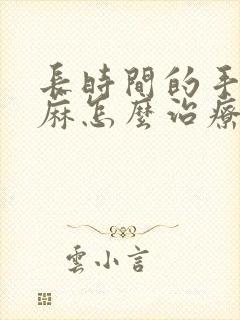 長時間的手
麻怎麼治療
雲小言